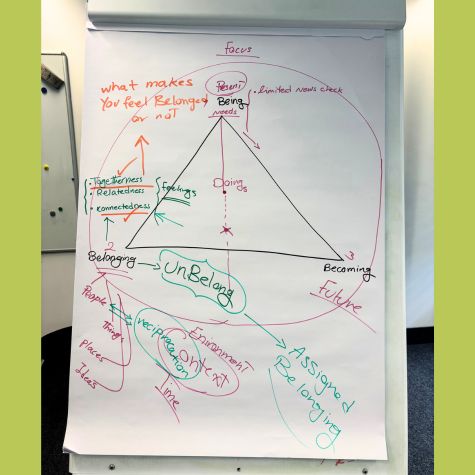 Focus
Present
Being
needs
• limited news check
what makes
You feel Belonged
or not
• Togetherness
• Relatedness
• Konnectedness
feelings
Doings
2
Belonging
3
Becoming
UnBelong
Future
People
Things
Places
Ideas
reciprocation
Environment
Context
Time
Assigned
Belonging